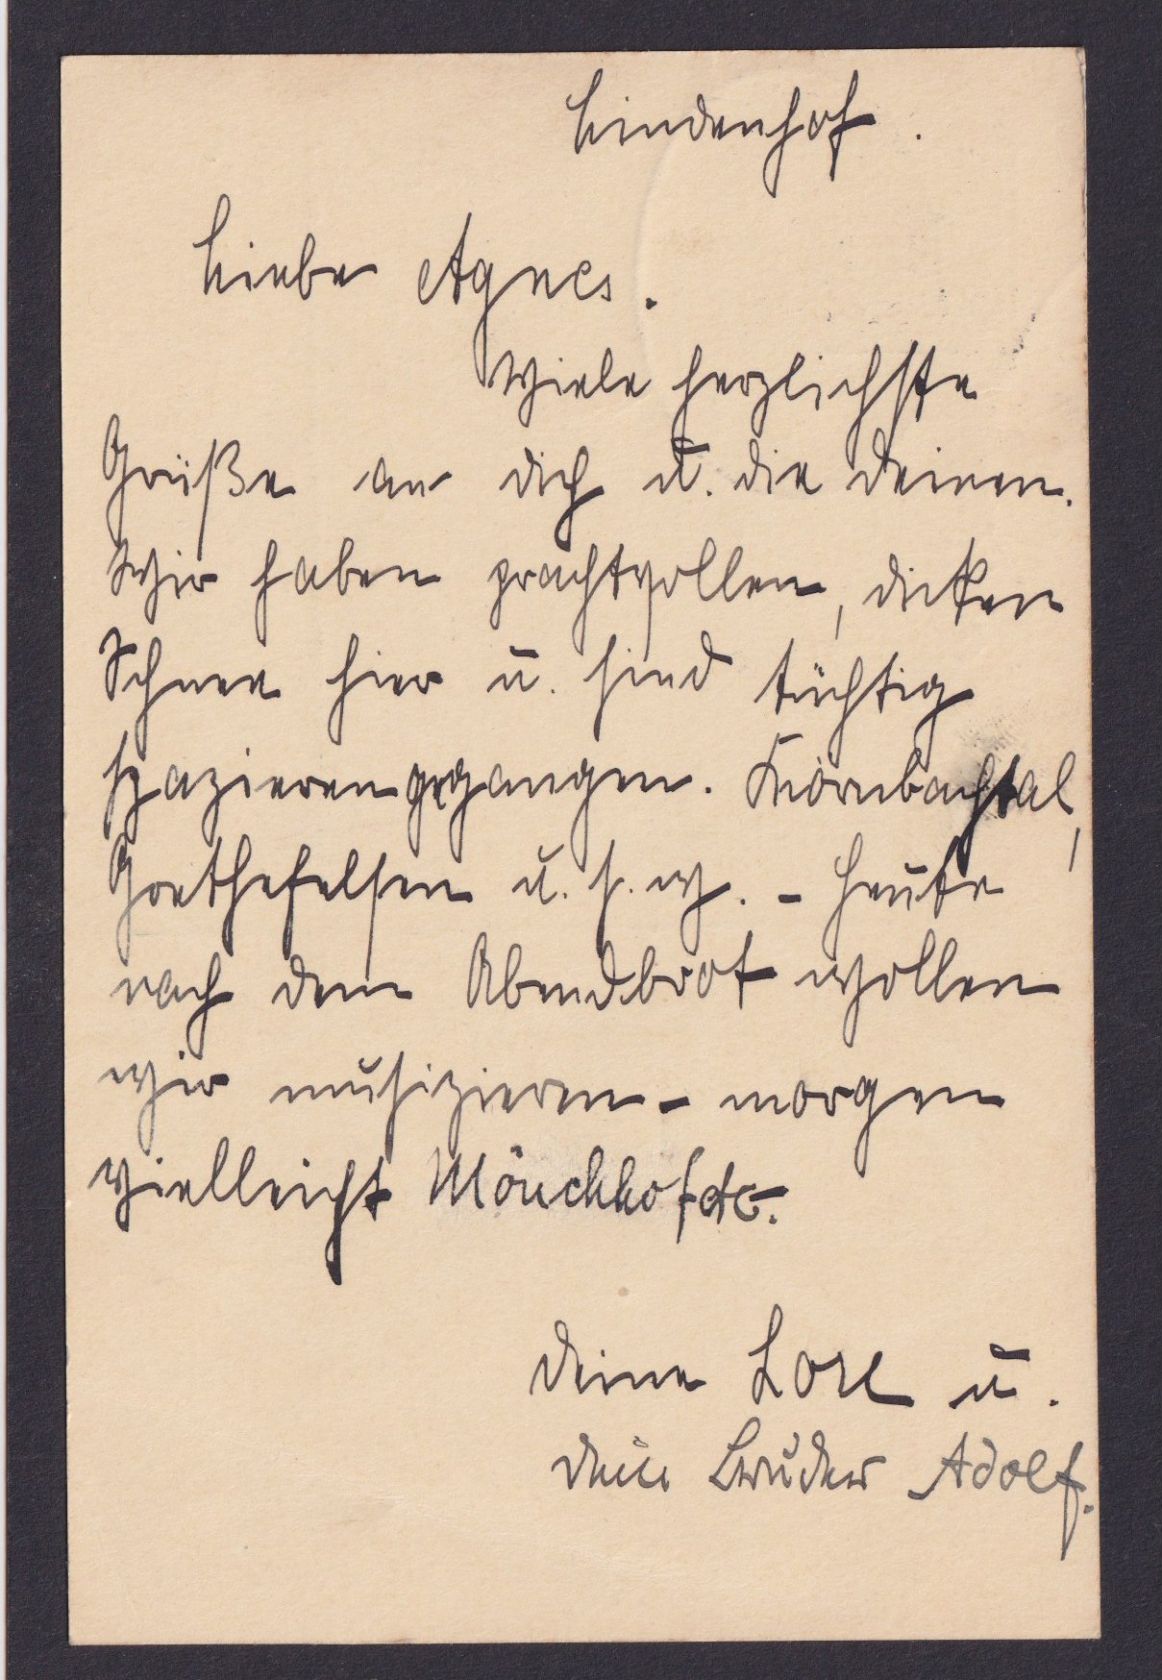 Lindenhof.
Liebe Agnes.
Viele herzlichste
Grüße an dich u. die deinen.
Wir haben prachtvollen, dicken
Schnee hier u. sind tüchtig
spazierengegangen. Knörnbachtal,
Goethefelsen u. s. w. - Heute
nach dem Abendbrot wollen
wir musizieren - morgen
vielleicht Mönchhof etc.
Deine Lore u.
dein Bruder Adolf.